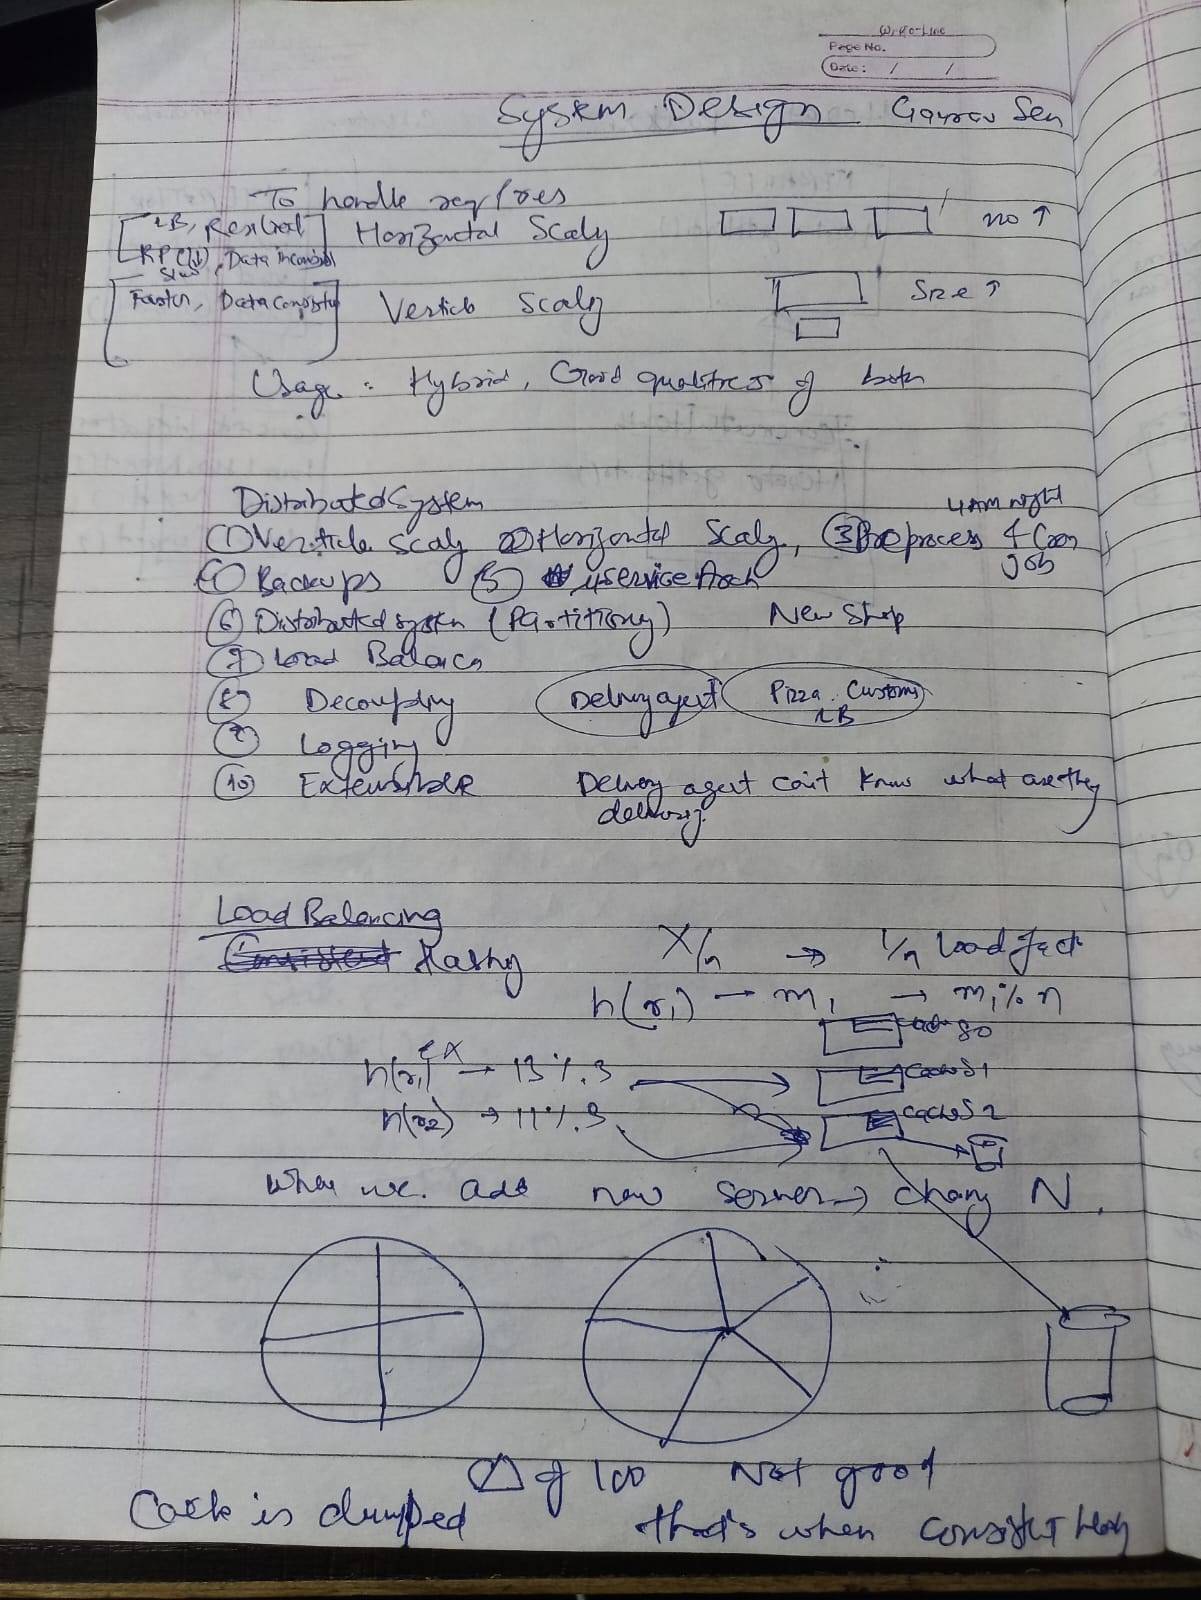 Write-Line
Page No.
Date: / /
System Design Gaurav Sen
To handle req/res
[LB, Resilient] Horizontal Scaly no ↑
RPC(↓), Data Inconsist
Slow
[Faster, Data Consisty] Verticle Scaly Size ↑
Usage : Hybrid, Good qualities of both
Distributed System 4AM night
① Verticle Scaly ② Horizontal Scaly, ③ Preprocess & Cron
Job
④ Backups ⑤ μservice Arch
⑥ Distributed system (Partitiony) New Shop
⑦ Load Balance
⑧ Decouplny Delivery agent Pizza Customs
LB
⑨ Logging
⑩ Extensible Delivery agent can't know what are they
delivery.
Load Balancing
Hashy X/n → 1/n load fact
h(r₁) → m₁ → m₁ % n
S0
ex
h(r₁) → 13 % 3 Cache S1
h(r₂) → 11 % 3 Cache S2
when we. add new server → chang N.
△ of 100 Not good
Cache is dumped that's when consistent hash